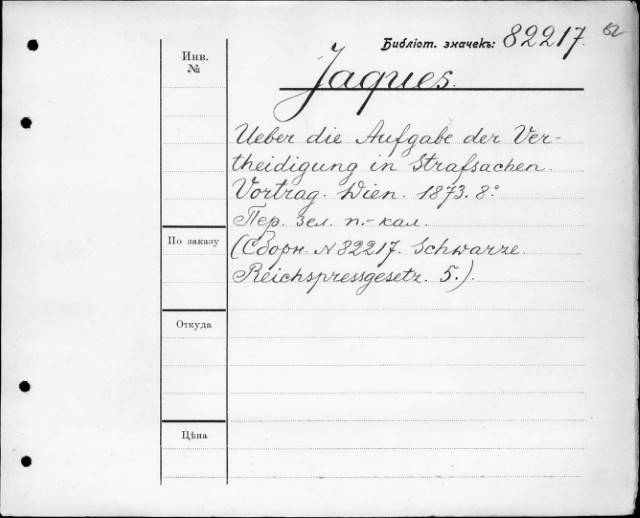 Библіот. значекъ: 82217.
62
Инв.
№
Jaques.
Ueber die Aufgabe der Ver-
theidigung in Strafsachen.
Vortrag. Wien. 1873. 8º
Пер. зел. п.-кал.
По заказу
(Сборн. N 82217. Schwarze.
Reichspressgesetz. 5.).
Откуда
Цѣна